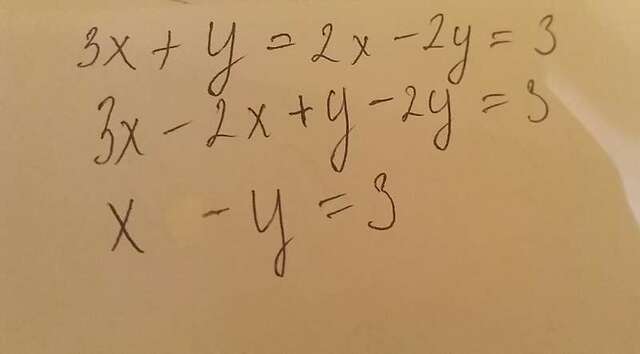 3x + y = 2x - 2y = 3
3x - 2x + y - 2y = 3
x - y = 3